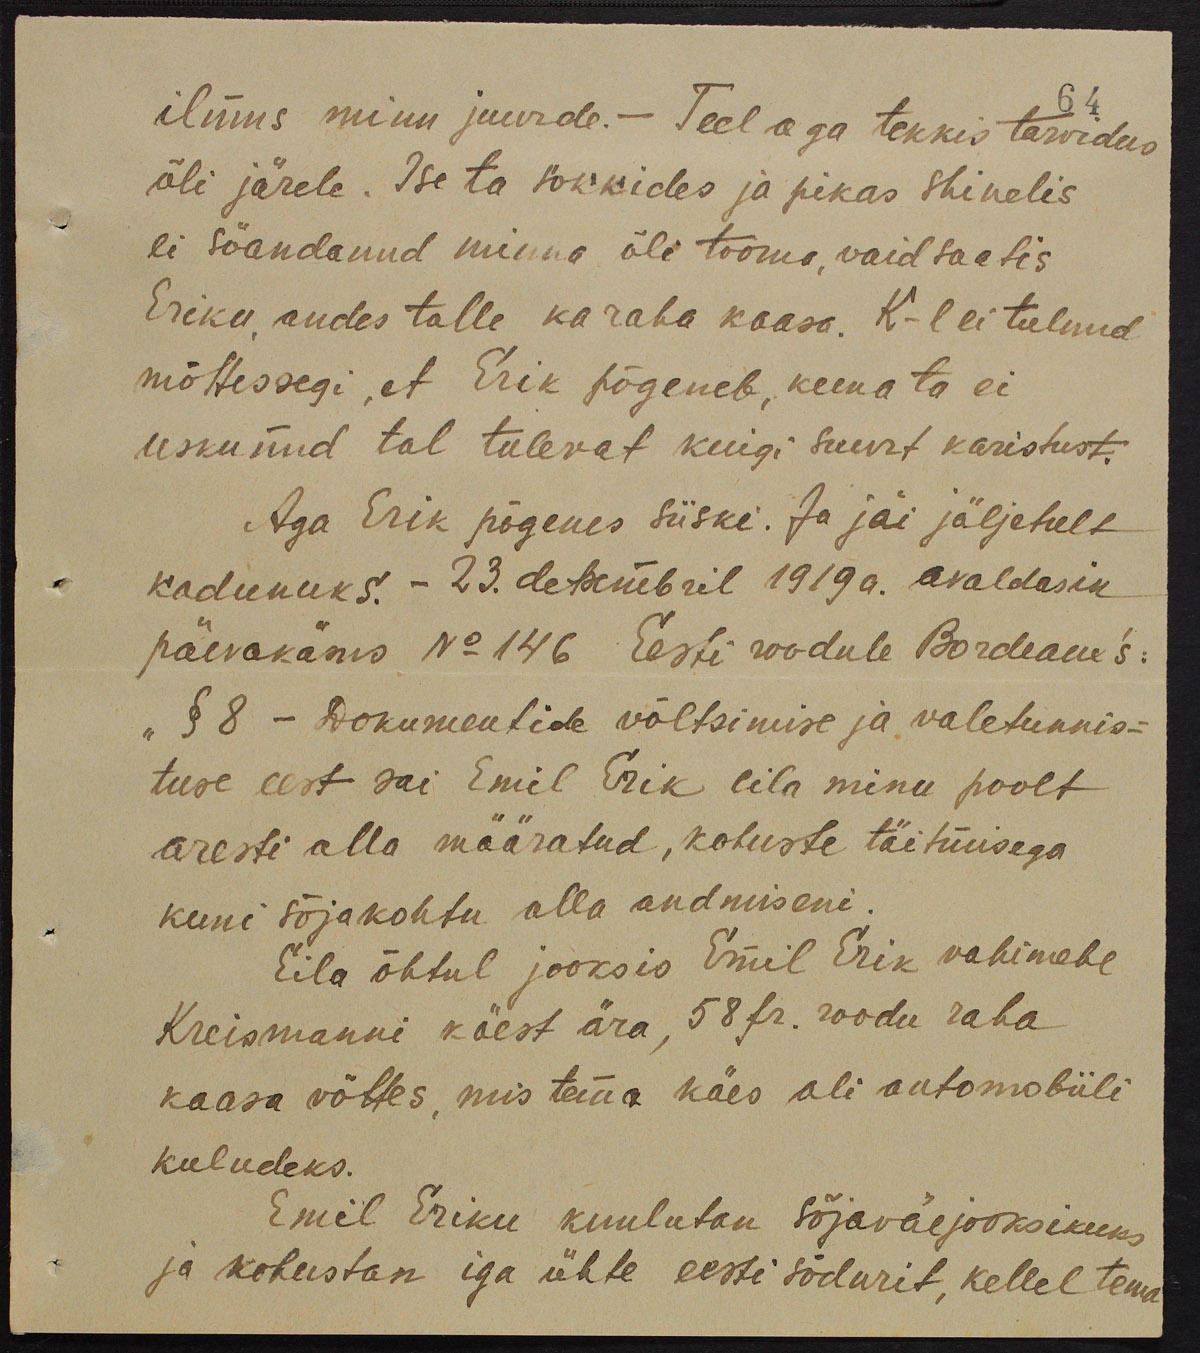 64
ilmus minu juurde. - Teel aga tekkis tarvidus
õli järele. Ise ta sokkides ja pikas shinelis
ei söandanud minna õli tooma, vaid saatis
Eriku, andes talle ka raha kaasa. K-l ei tulnud
mõttessegi, et Erik põgeneb, kuna ta ei
uskunud tal tulevat kuigi suurt karistust.
Aga Erik põgenes siiski. Ja jäi jäljetult
kadunuks. - 23. detsembril 1919 a. avaldasin
päevakäsus № 146 Eesti roodule Bordeaux's:
„§ 8 - Dokumentide võltsimise ja valetunnis=
tuse eest sai Emil Erik eila minu poolt
aresti alla määratud, kohuste täitmisega
kuni sõjakohtu alla andmiseni.
Eila õhtul jooksis Emil Erik vahimehe
Kreismanni käest ära, 58 fr. roodu raha
kaasa võttes, mis tema käes oli automobiili
kuludeks.
Emil Eriku kuulutan sõjaväejooksikuks
ja kohustan iga ühte eesti sõdurit, kellel tema